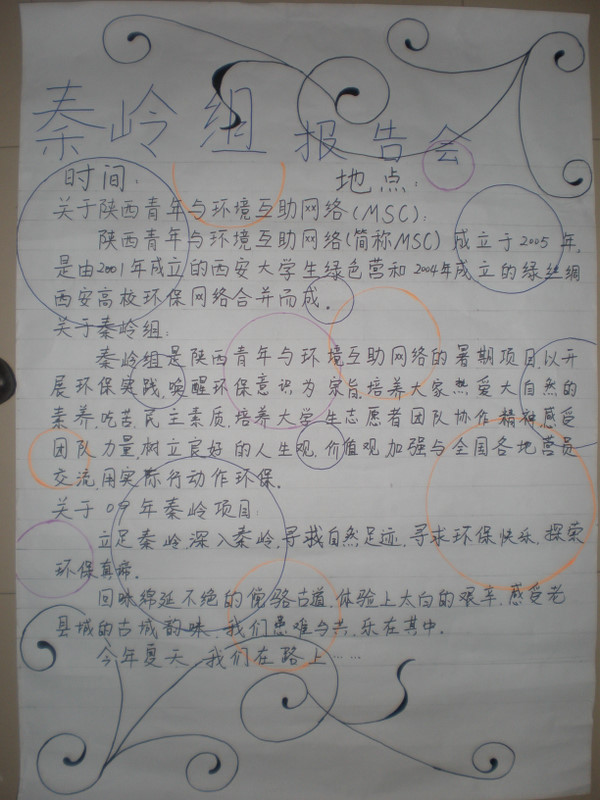 秦岭组报告会
时间: 地点:
关于陕西青年与环境互助网络(MSC):
陕西青年与环境互助网络(简称MSC)成立于2005年,
是由2001年成立的西安大学生绿色营和2004年成立的绿丝绸
西安高校环保网络合并而成。
关于秦岭组:
秦岭组是陕西青年与环境互助网络的暑期项目,以开
展环保实践,唤醒环保意识为宗旨,培养大家热爱大自然的
素养,吃苦,民主素质,培养大学生志愿者团队协作精神,感受
团队力量,树立良好的人生观,价值观,加强与全国各地营员
交流,用实际行动作环保。
关于09年秦岭项目:
立足秦岭,深入秦岭,寻找自然足迹,寻求环保快乐,探索
环保真谛。
回味绵延不绝的傥骆古道,体验上太白的艰辛,感受老
县城的古城韵味,我们患难与共,乐在其中。
今年夏天,我们在路上……